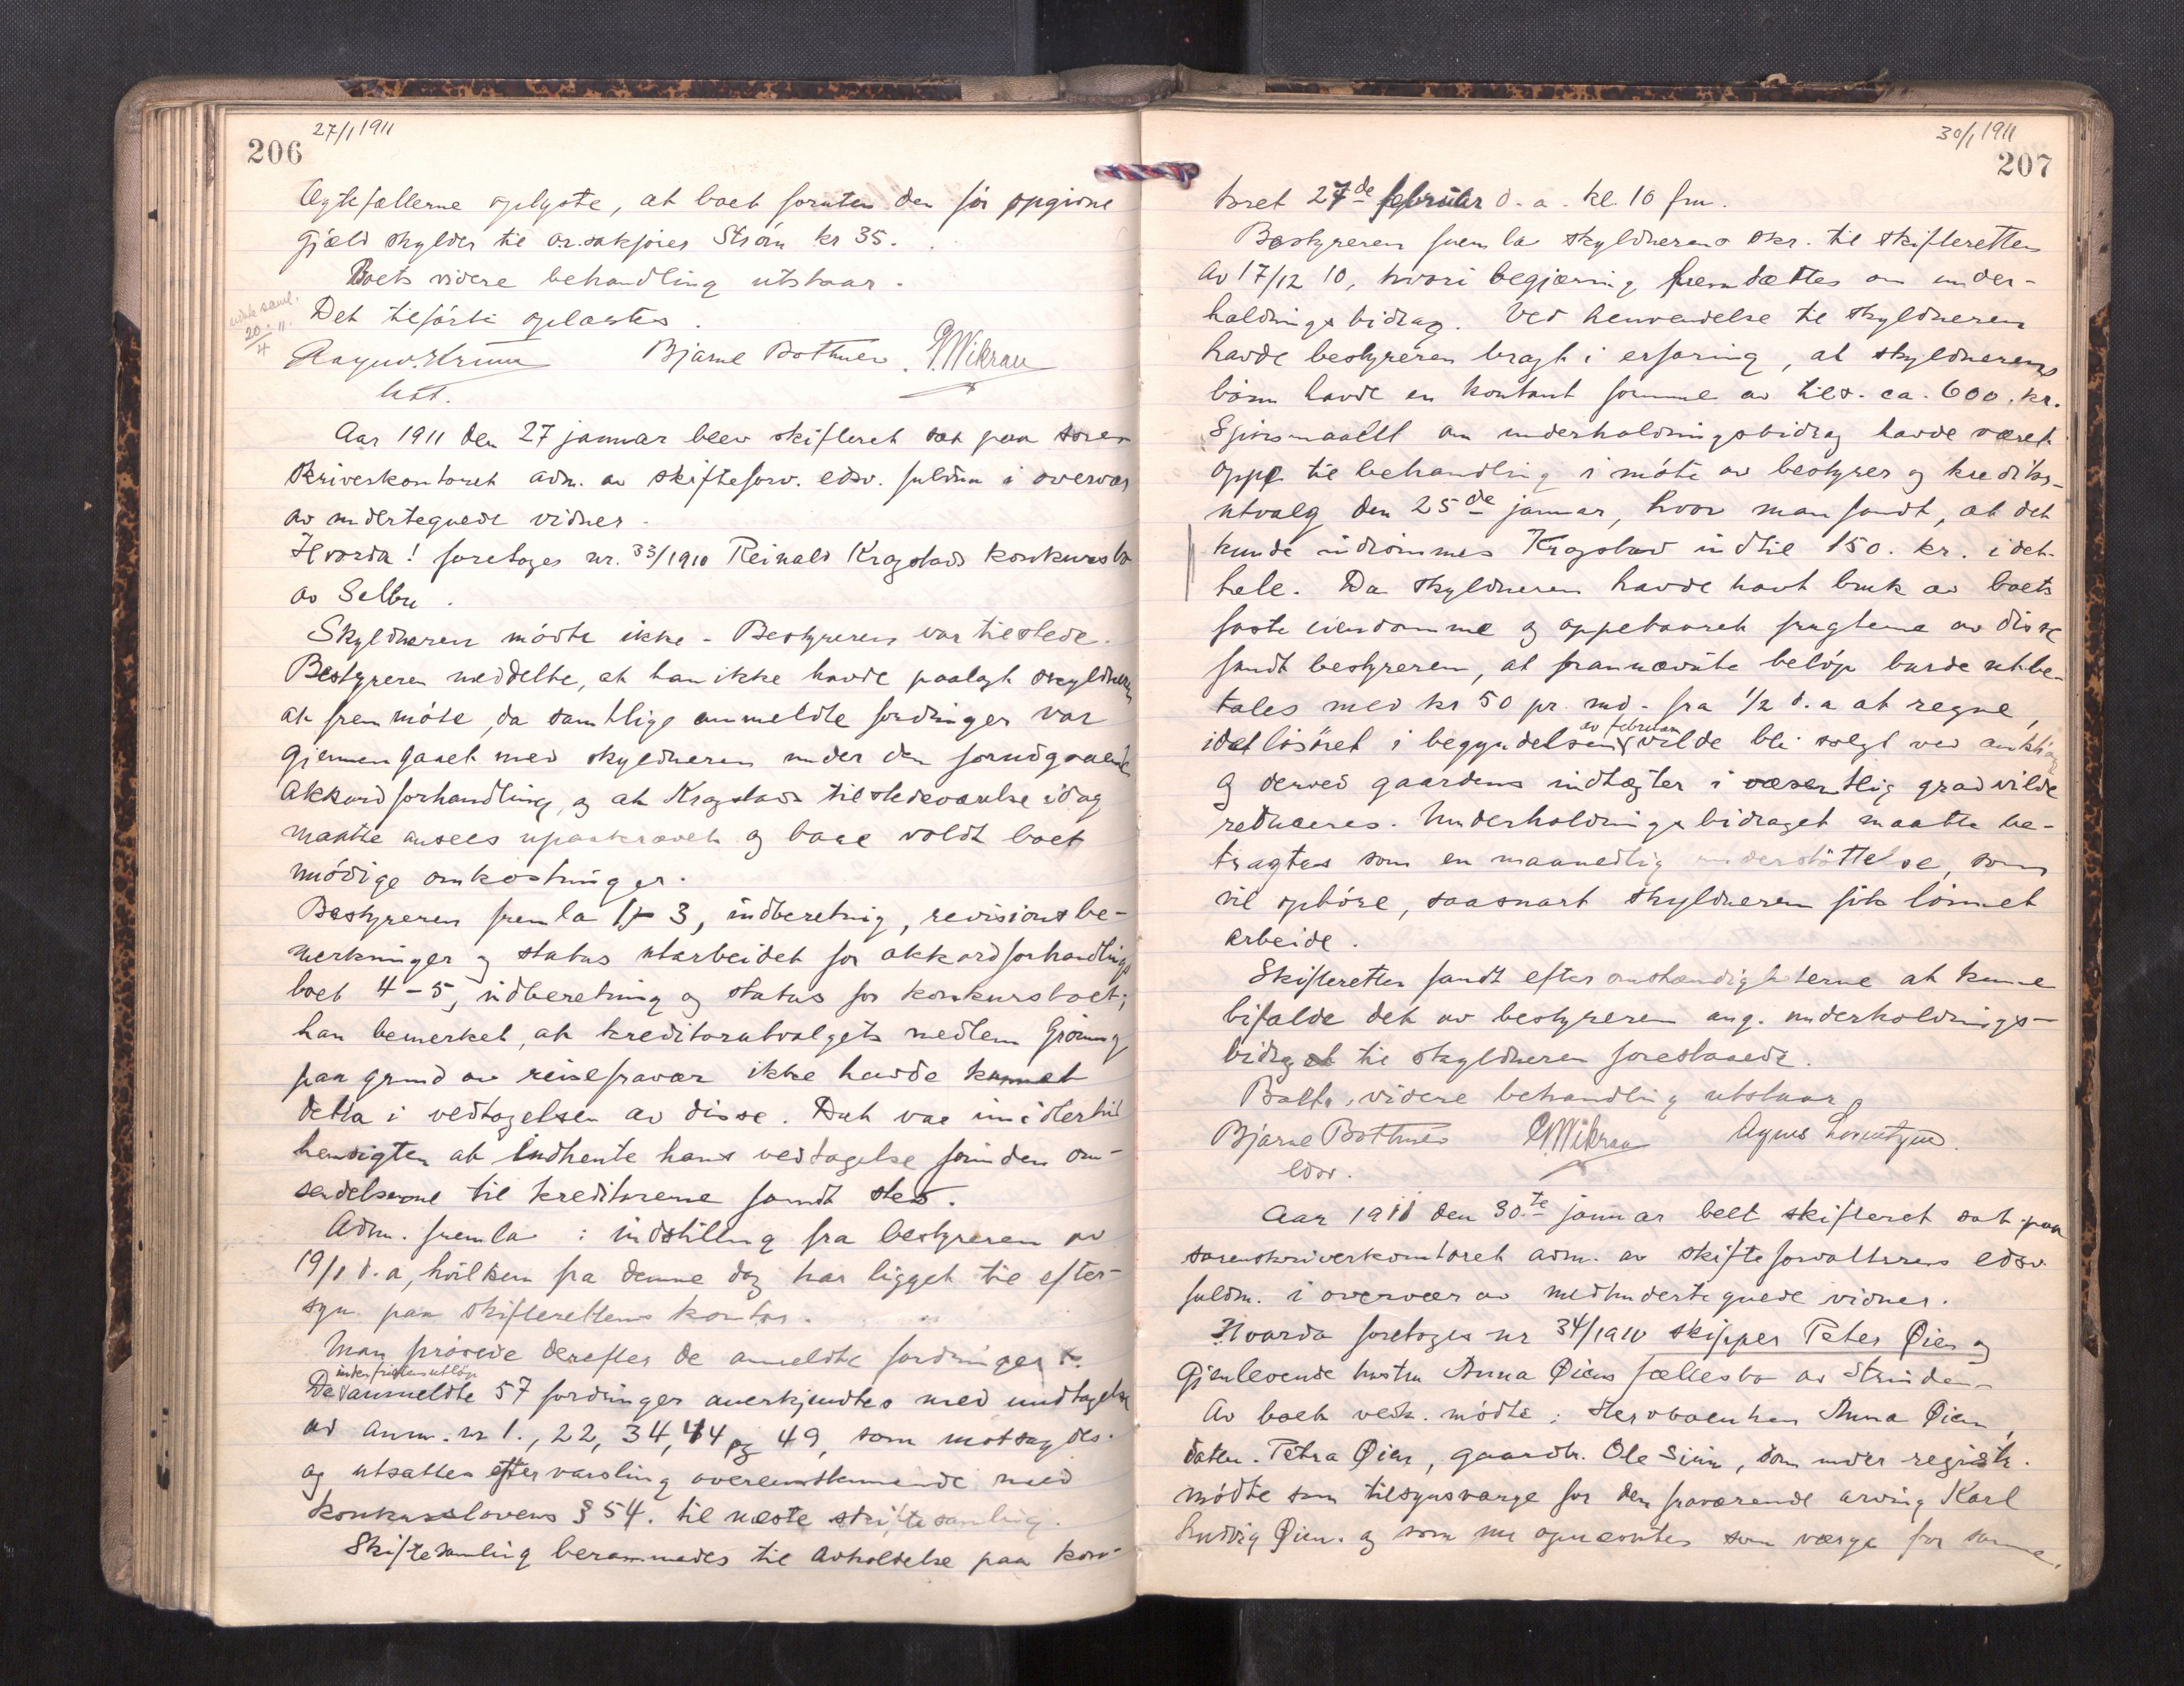 27/1 1911
206
Egtefællerne oplyste, at boet foruten den før opgivne
gjæld skylder til o.r.sakfører Strøm kr 35.
Boets videre behandling utstaar.
sidste saml.
20/4 11.
Det tilførte oplæstes.
Bjarne Bothner. P. Mikrau
Aar 1911 den 27 januar blev skifteret sat paa soren
skriverkontoret adm. av skifteforv. edsv. fuldm i overvær
av undertegnede vidner.
Hvorda! foretoges nr. 33/1910 Reinald Kragstads konkursbo
av Selbu.
Skyldneren mødte ikke - Bestyreren var tilstede.
Bestyreren meddelte, at han ikke havde paalagt skyldneren
at fremmøte, da samtlige anmeldte fordringer var
gjennemgaaet med skyldneren under den forudgaaende
akkordforhandling, og at Kragstads tilstedeværelse idag
maatte ansees upaakrævet og bare voldt boet
unødige omkostninger.
Bestyreren fremla 1-3, indberetning, revisionsbe-
merkninger og status utarbeidet for akkordforhandlings
boet 4-5, indberetning og status for konkursboet;
han bemerket, at kreditorutvalgets medlem Grønning
paa grund av reisefravær ikke havde kunnet
delta i vedtagelsen av disse. Det var imidlertid
hensigten at indhente hans vedtagelse førinden om-
sendelserne til kreditorerne fandt sted.
Adm. fremla: indstilling fra bestyreren av
19/1 d.a, hvilken fra denne dag har ligget til efter-
syn paa skifterettens kontor.
Man prøvede derefter de anmeldte fordringer.
inden fristens utløp
De anmeldte 57 fordringer anerkjendtes med undtagelse
av anm. nr 1., 22, 34, 44 og 49, som motsagdes.
og utsattes efter varsling overensstemmende med
konkurslovens § 54. til næste skiftesamling.
Skiftesamling berammedes til avholdelse paa kon-
30/1 1911
207
toret 27de februar d.a. kl. 10 fm.
Bestyreren fremla skyldnerens skr. til skifteretten
av 17/12 10, hvori begjæring fremsættes om under-
holdningsbidrag. Ved henvendelse til skyldneren
havde bestyreren bragt i erfaring, at skyldnerens
børn havde en kontant summe av tils. ca. 600. kr.
Spørsmaalet om underholdningsbidrag havde været
oppe til behandling i møte av bestyrer og kreditor-
utvalg den 25de januar, hvor man fandt, at det
kunde indrømmes Kragstad indtil 150. kr. i det
hele. Da skyldneren havde havt bruk av boets
faste eiendomme og oppebaaret frugterne av disse
fandt bestyreren, at frannævnte beløp burde utbe-
tales med kr 50 pr. md. fra 1/2 d.a at regne,
av februar
idet løsøret i begyndelsen vilde bli solgt ved auktion
og derved gaardens indtægter i væsentlig grad vilde
reduceres. Underholdningsbidraget maatte be-
tragtes som en maanedlig understøttelse, som
vil ophøre, saasnart skyldneren fik lønnet
arbeide.
Skifteretten fandt efter omstændigheterne at kunne
bifalde det av bestyreren ang. underholdnings-
bidraget til skyldneren foreslaaede.
Boets videre behandling utstaar
Bjarne Bothner P. Mikrau Agnes Lorentzen
edsv.
Aar 1911 den 30te januar blet skifteret sat paa
sorenskriverkontoret adm. av skifteforvalterens edsv.
fuldm. i overvær av medundertegnede vidner.
Hvorda foretoges nr 34/1910 skipper Peter Øien og
gjenlevende hustru Anna Øiens fællesbo av Strinden
Av boet vedk. mødte: Stervboenken Anna Øien,
datter Petra Øien, gaardbr. Ole Siim, som under registr.
mødte som tilsynsværge for den fraværende arving Karl
Ludvig Øien. og som nu opnævntes som værge for samme.